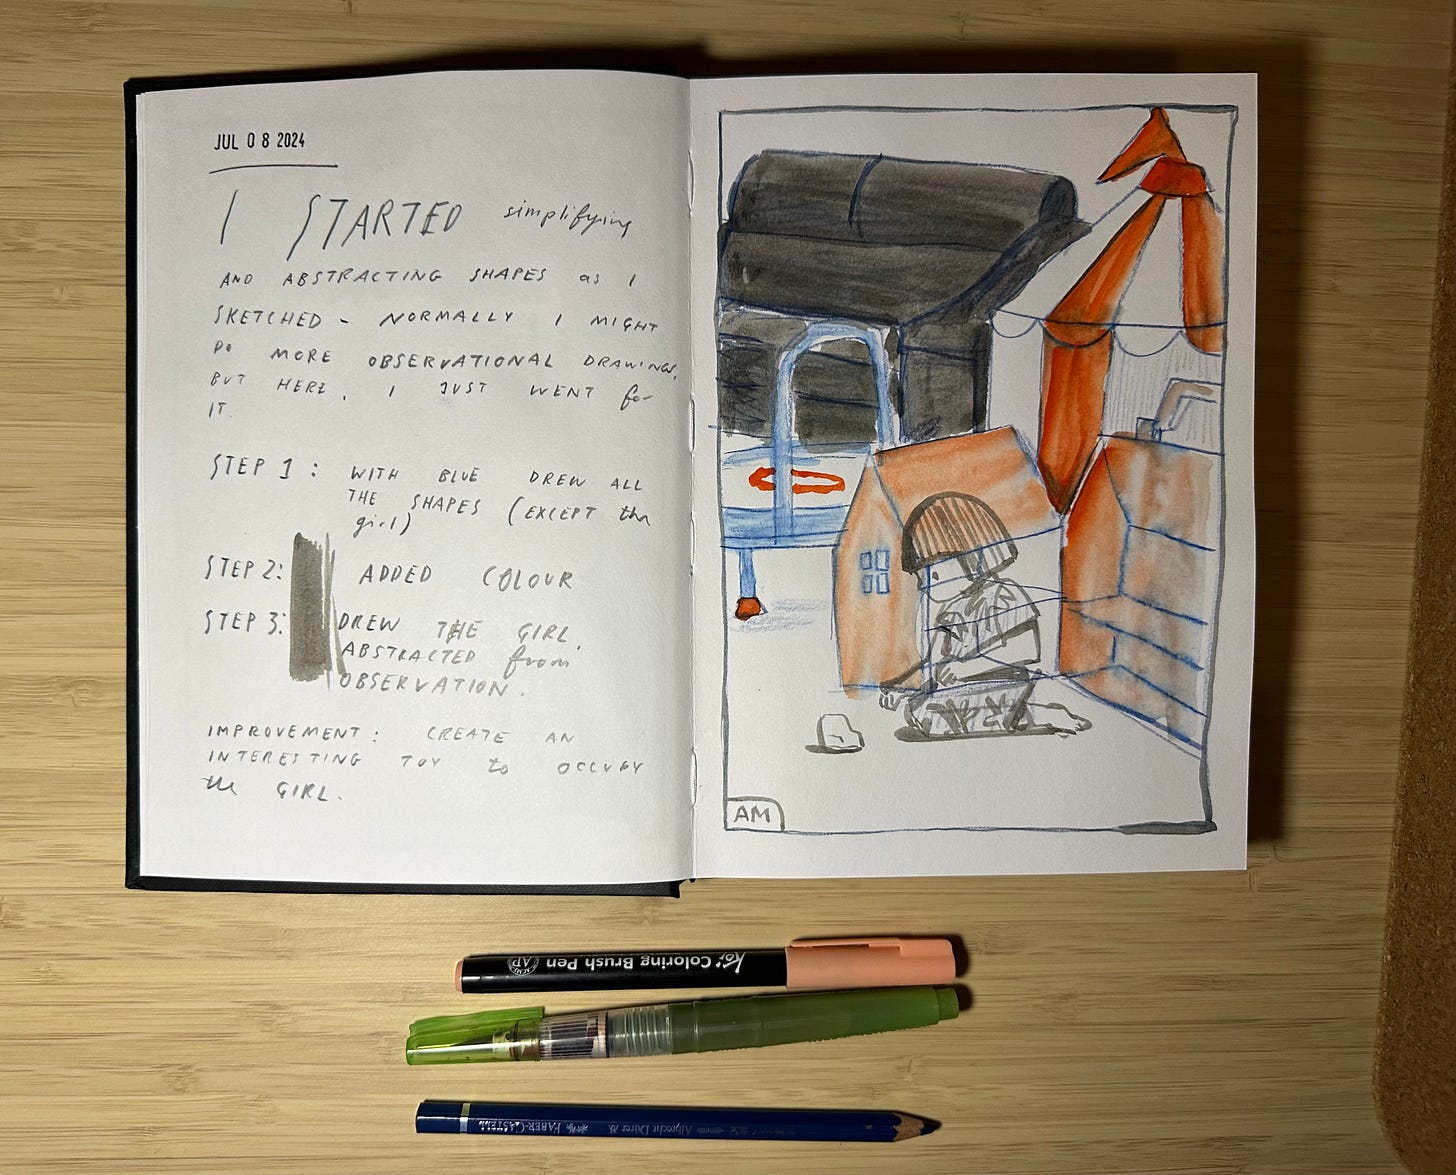 JUL 08 2024
I STARTED simplifying
AND ABSTRACTING SHAPES as I
SKETCHED - NORMALLY I MIGHT
DO MORE OBSERVATIONAL DRAWINGS,
BUT HERE, I JUST WENT for
IT.
STEP 1: WITH BLUE DREW ALL
THE SHAPES (EXCEPT the
girl)
STEP 2: ADDED COLOUR
STEP 3: DREW THE GIRL.
ABSTRACTED from
OBSERVATION.
IMPROVEMENT: CREATE AN
INTERESTING TOY to OCCUPY
the GIRL.
AM
Koi Coloring Brush Pen
AP
FABER-CASTELL Albrecht Dürer